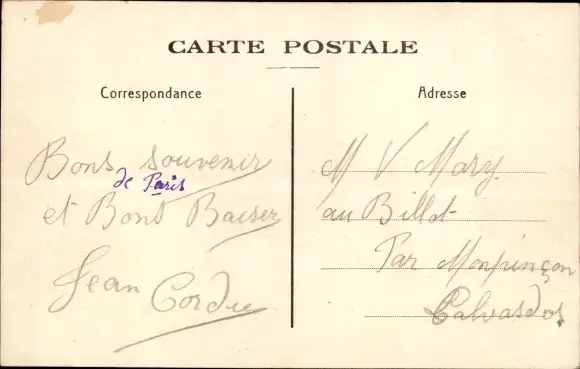 CARTE POSTALE
Correspondance
Adresse
Bons souvenir
de Paris
et Bont Baiser
Jean Cordu
M V Mary
au Billot
Par Monpinçon
Calvasdos